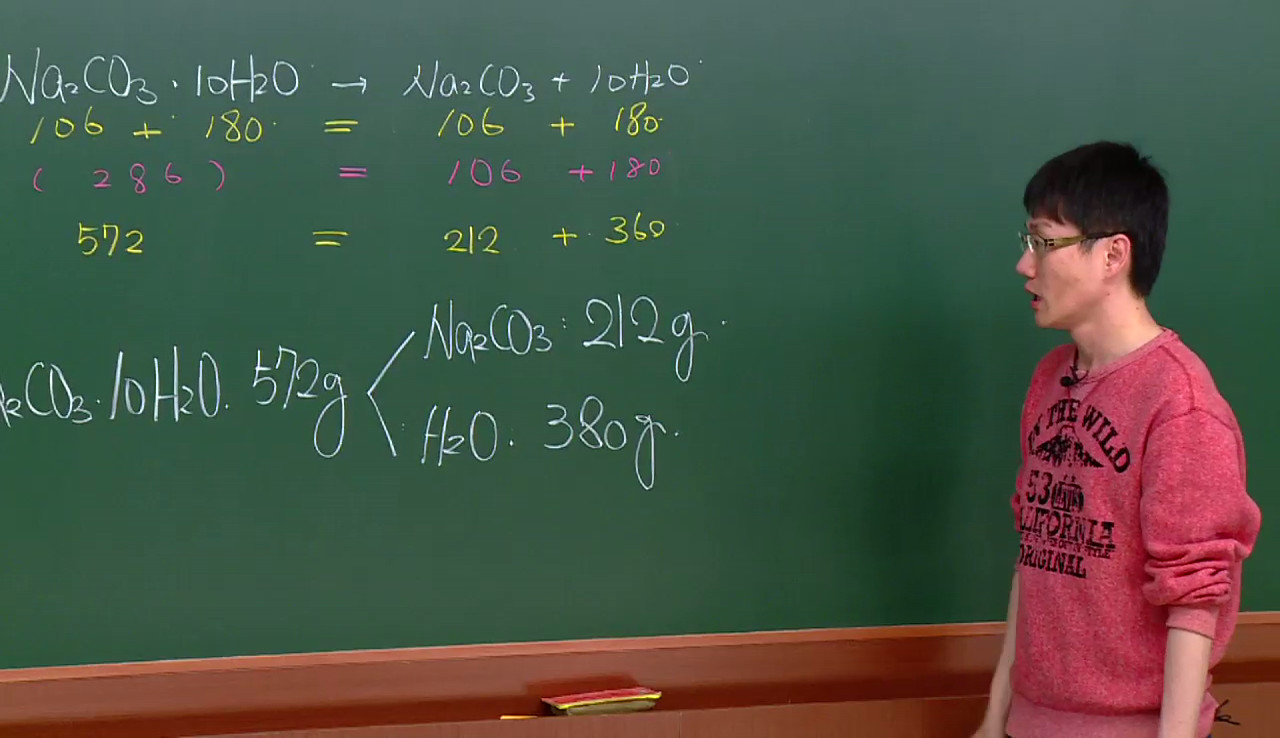 Na₂CO₃ · 10H₂O → Na₂CO₃ + 10H₂O
106 + 180 = 106 + 180
( 286 ) = 106 + 180
572 = 212 + 360
Na₂CO₃ : 212g
₂CO₃ · 10H₂O. 572g
H₂O. 380g.
THE WILD
53
CALIFORNIA
ORIGINAL